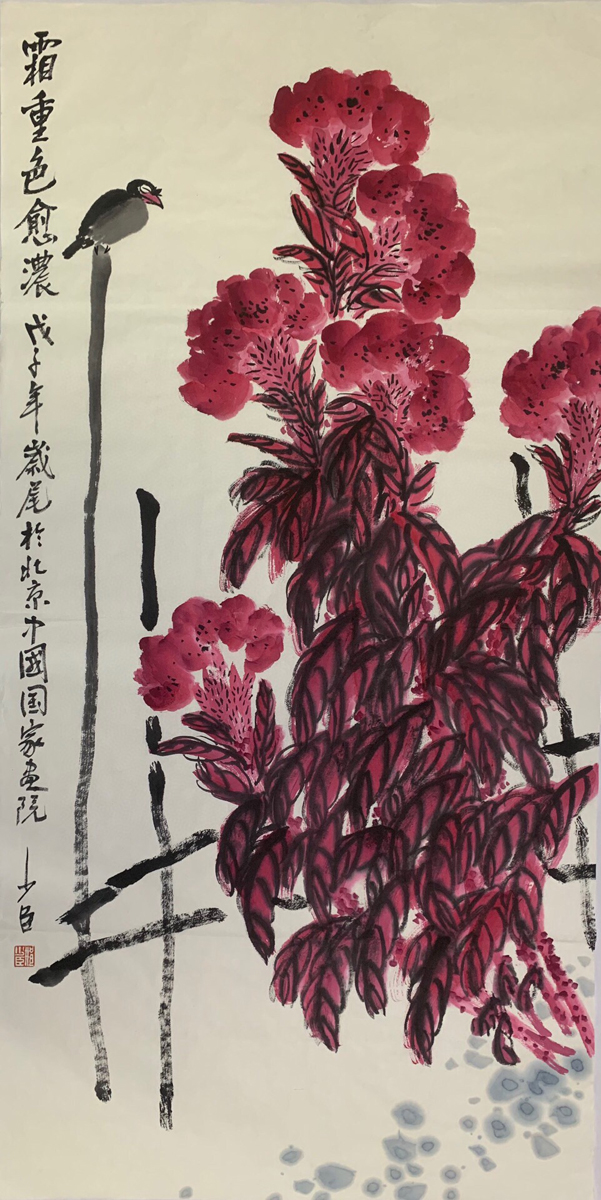 霜重色愈濃 戊子年歲尾於北京中國国家画院 少臣